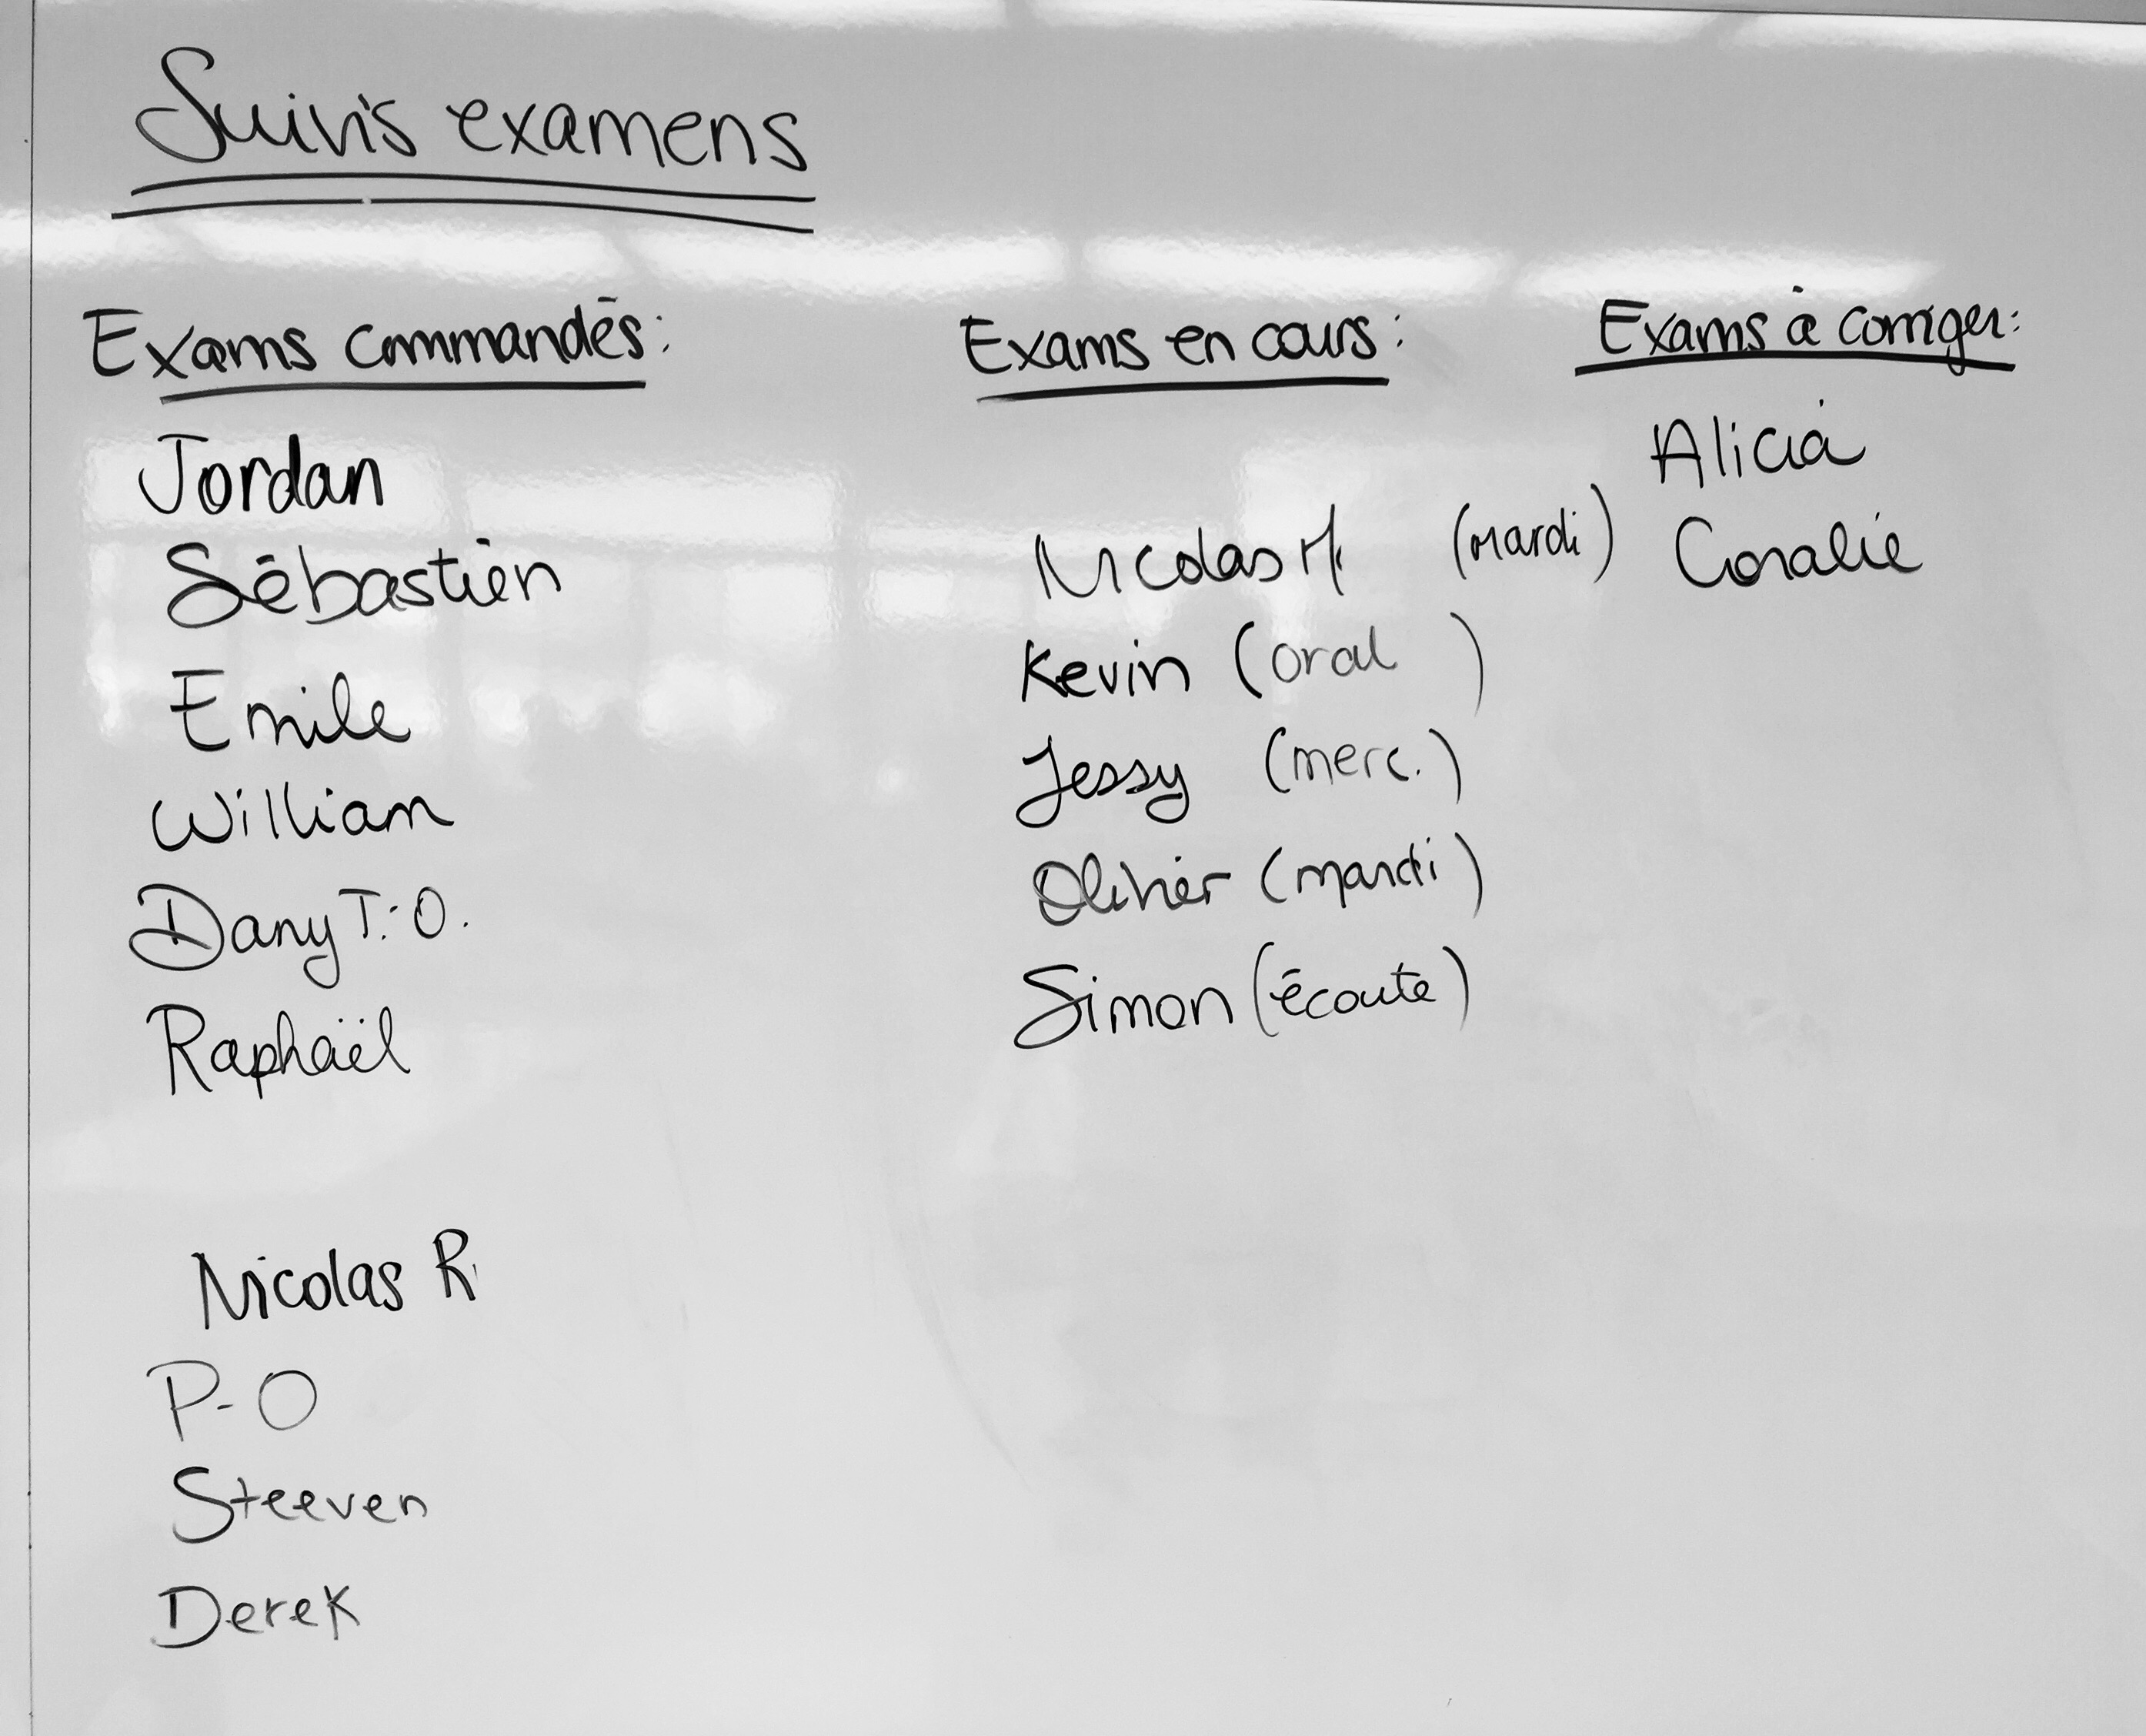 Suivis examens
Exams commandés:
Jordan
Sébastien
Emile
William
Dany T.-O.
Raphaël
Nicolas R.
P-O
Steeven
Derek
Exams en cours:
Nicolas M. (mardi)
Kevin (oral )
Jessy (merc.)
Olivier (mardi)
Simon (écoute)
Exams à corriger:
Alicia
Coralie